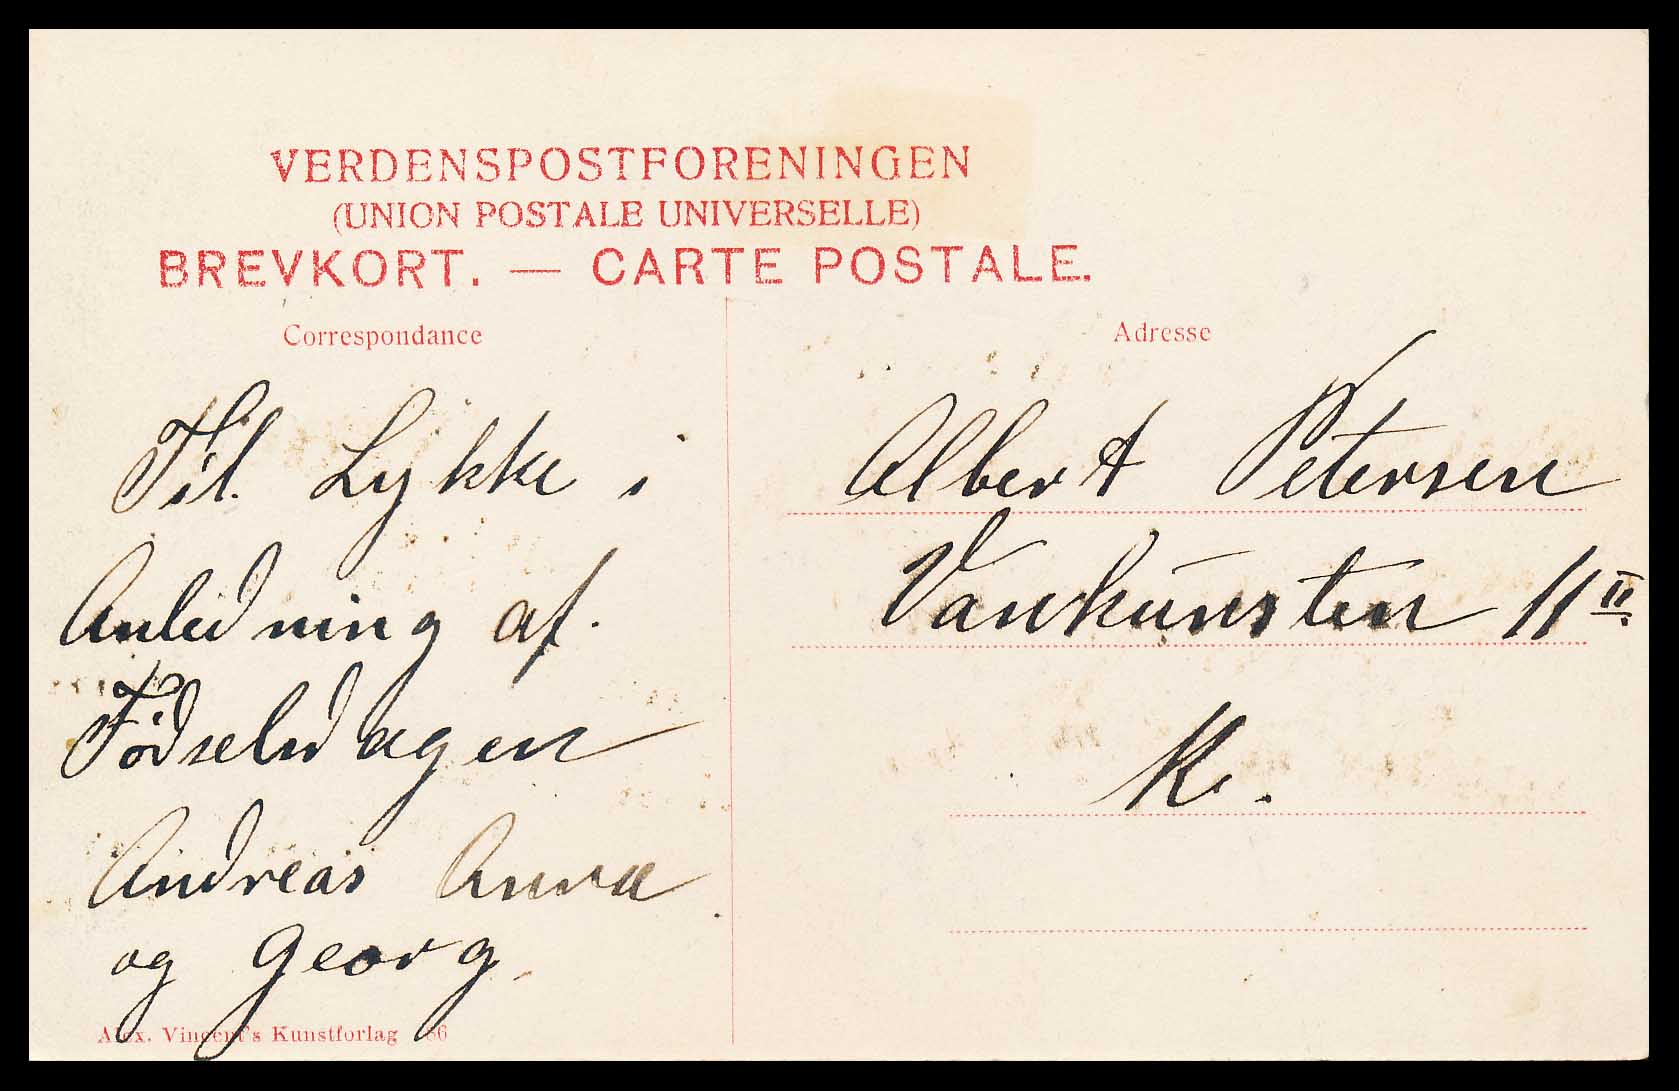 VERDENSPOSTFORENINGEN
(UNION POSTALE UNIVERSELLE)
BREVKORT. — CARTE POSTALE.
Correspondance
Til Lykke i
Anledning af.
Fødselsdagen
Andreas Anna
og Georg.
Adresse
Albert Petersen
Vankunsten 11 II
K.
Alex. Vincent's Kunstforlag 86